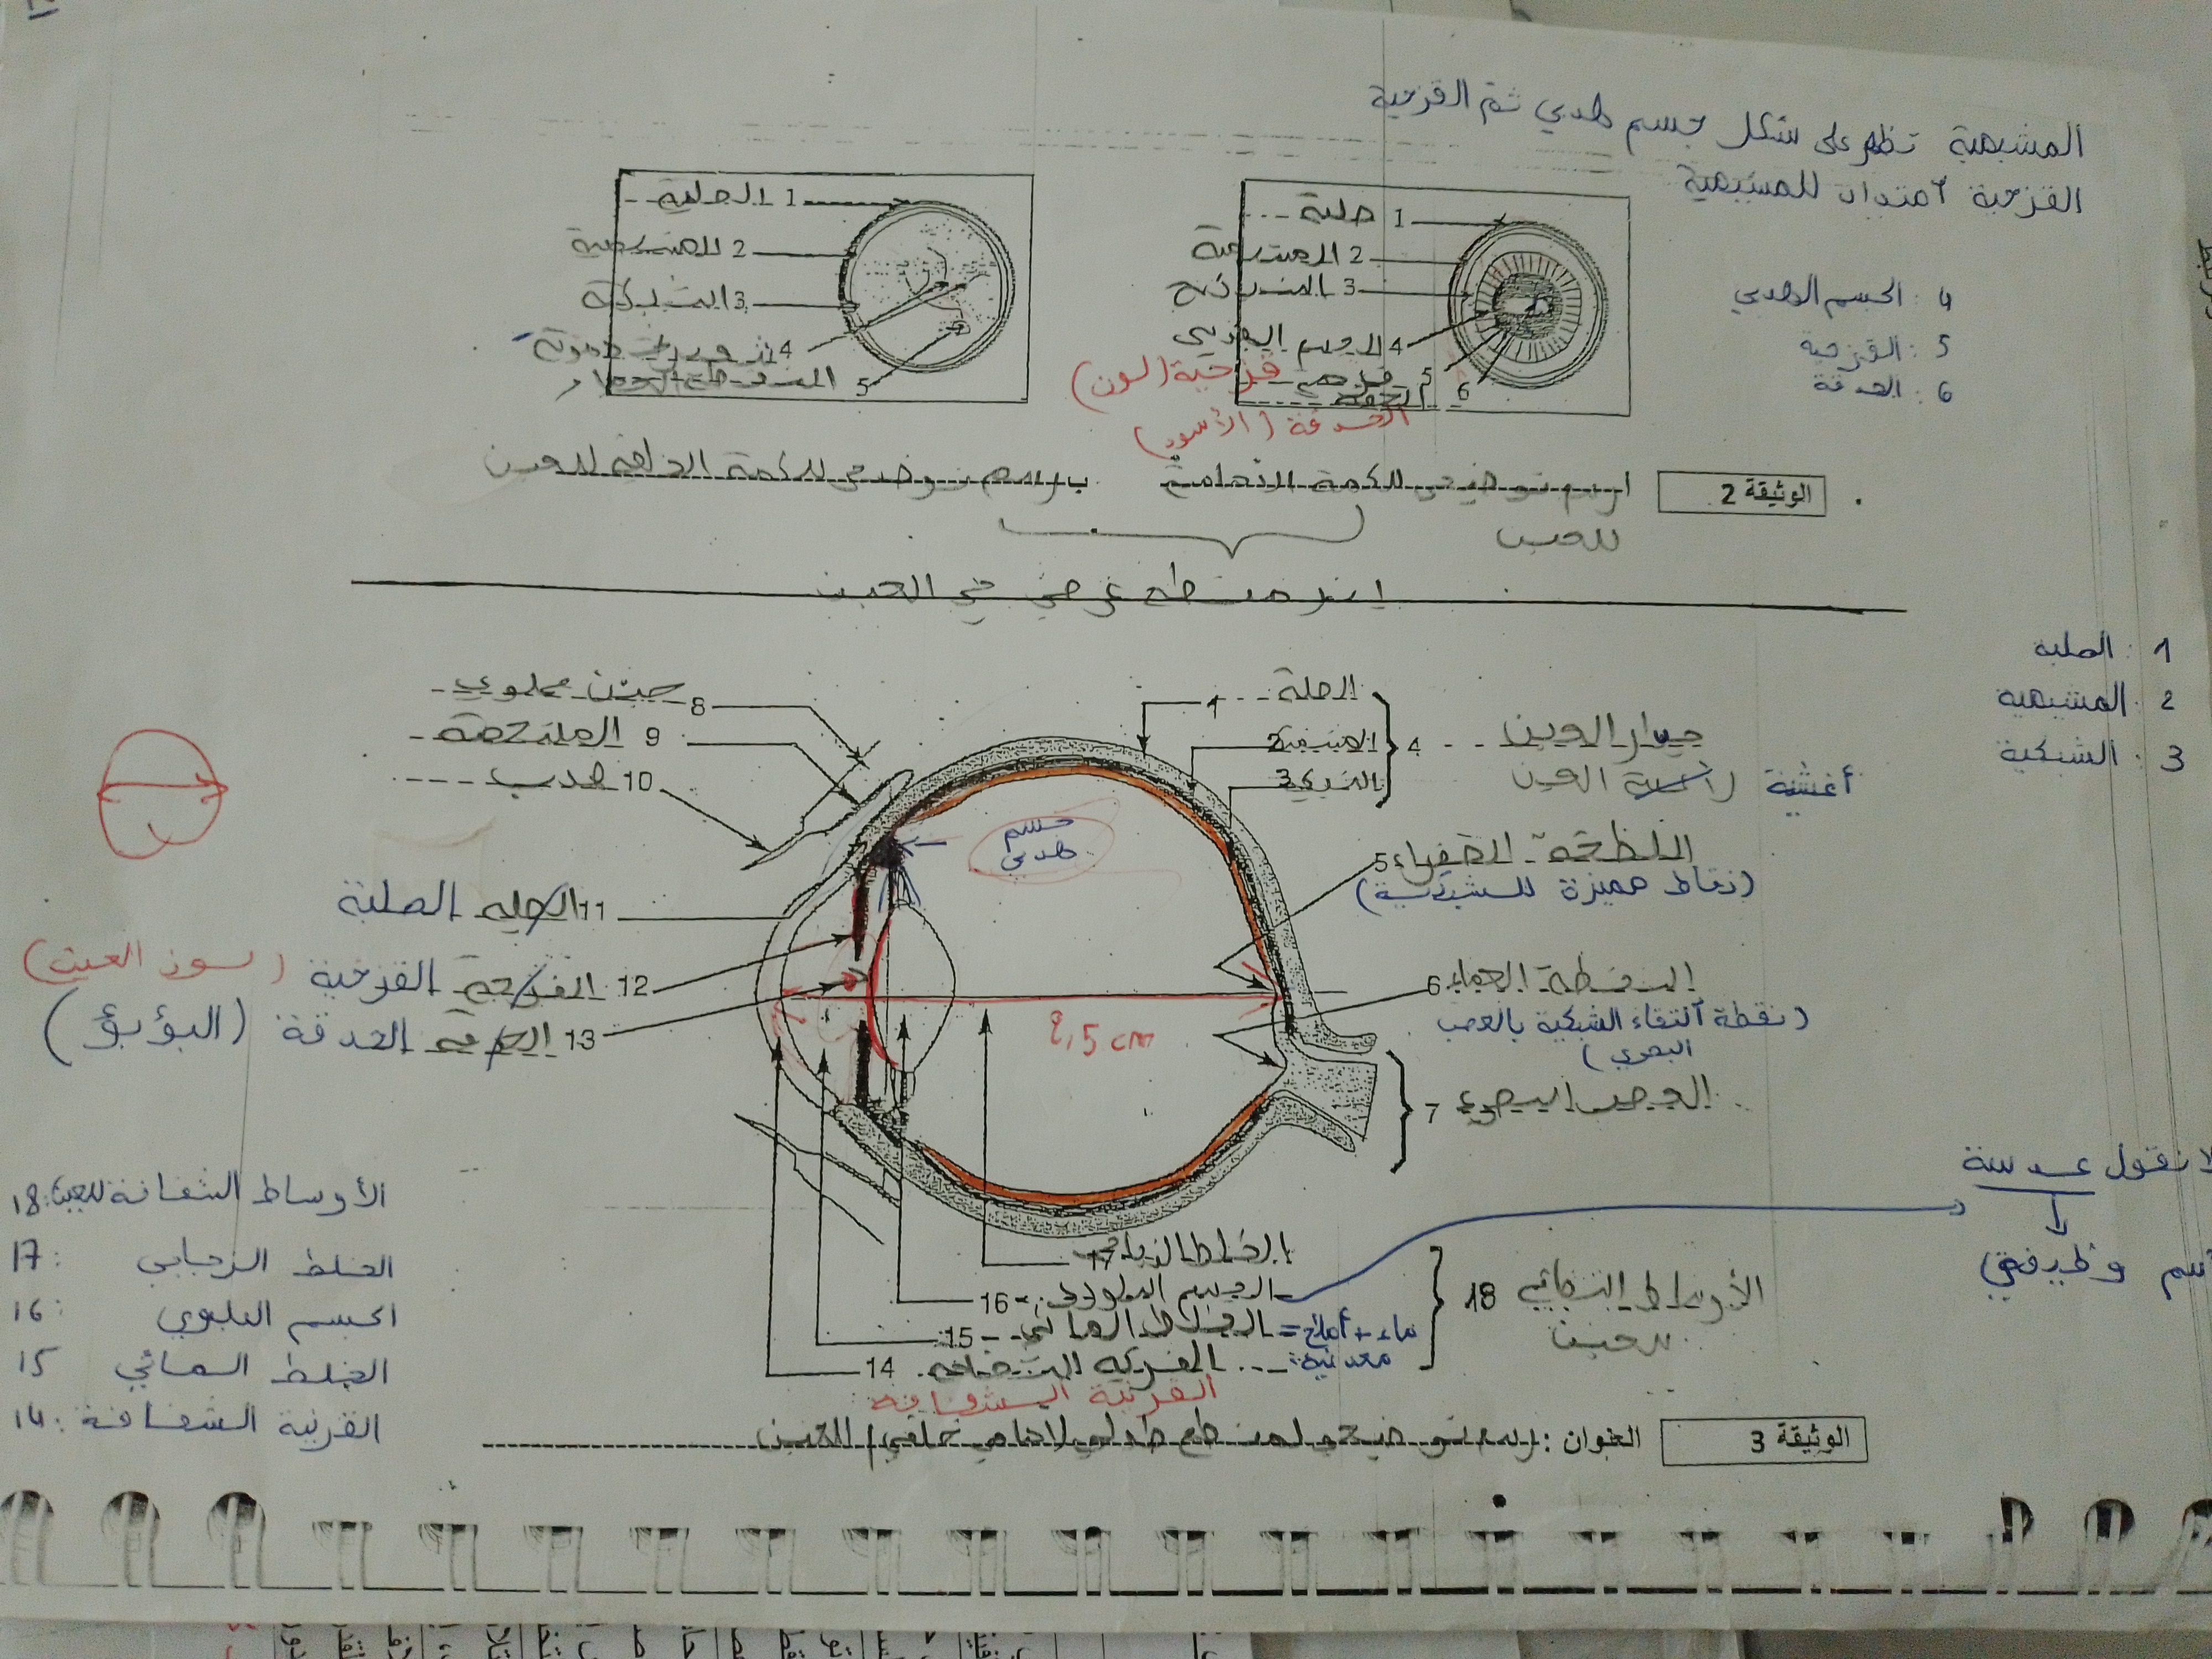 المشيمية تظهر على شكل جسم هدبي ثم القزحية
القزحية امتداد للمشيمية
1 صلبة
2 المشيمية
3 الشبكية
4 الجسم الهدبي
5 قزحية
قزحية (لون)
6 الحدقة
الحدقة (الأسود)
1 الصلبة
2 المشيمية
3 الشبكية
4
5
4 : الجسم الهدبي
5 : القزحية
6 : الحدقة
الوثيقة 2
ا رسم توضيحي للكمة الأمامية
للعين
ب رسم توضيحي للكمة الخلفية للعين
في العين
1 : الصلبة
2 : المشيمية
3 : الشبكية
1 الصلبة
2 المشيمية
3 الشبكية
4 جدار العين
أغشية العين
8 جفن علوي
9 الملتحمة
10 هدب
جسم
هدبي
5 اللطخة الصفراء
(نقاط مميزة للشبكية)
11 الصلبة
12 القزحية القزحية (لون العين)
13 الحدقة الحدقة (البؤبؤ)
2,5 cm
6 النقطة العمياء
(نقطة التقاء الشبكية بالعصب
البصري)
7 العصب البصري
لا نقول عدسة
اسم وظيفي
17 الخلط الزجاجي
16 الجسم البلوري
15 الخلط المائي = ماء + أملاح
معدنية
14 القرنية الشفافة
القرنية الشفافة
18 الأوساط الشفافة
للعين
18: الأوساط الشفافة للعين
17 : الخلط الزجاجي
16 : الجسم البلوري
15 الخلط المائي
14 : القرنية الشفافة
الوثيقة 3
العنوان : رسم توضيحي لمقطع طولي لأمامي خلفي للعين